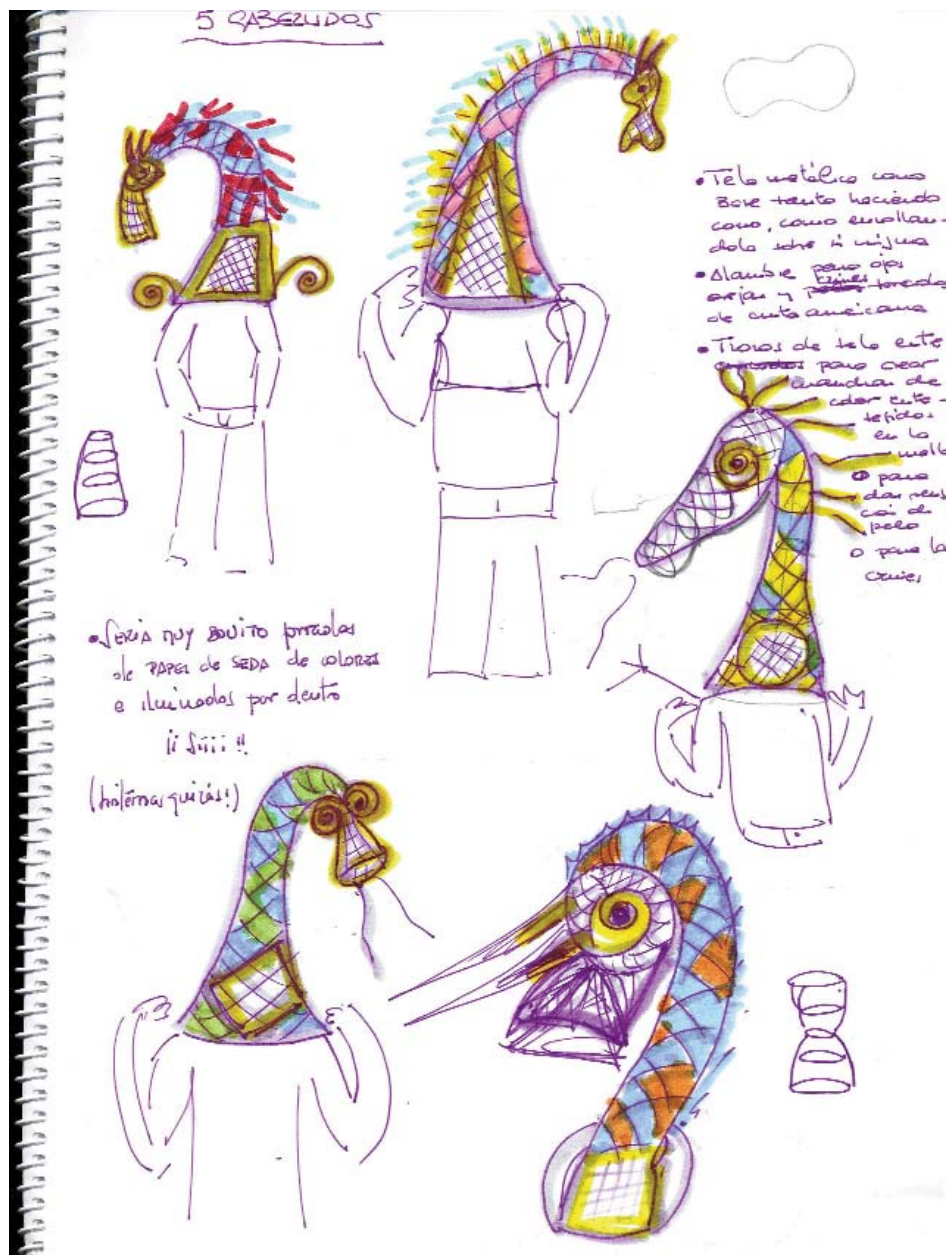 5 CABEZUDOS
• Tela metálica como
Base tanto haciendo
cono, como enrollan-
dola sobre si misma
• Alambre para ojos
orejas y crines forrados
de cinta americana
• Tiras de tela entre
para crear
manchas de
color entre-
tejidos
en la
malla
O para
dar sensa
ción de
pelo
o para las
crines
• SERIA MUY BONITO forrados
de PAPEL de SEDA de colores
e iluminados por dentro
¡¡ Siiii !!